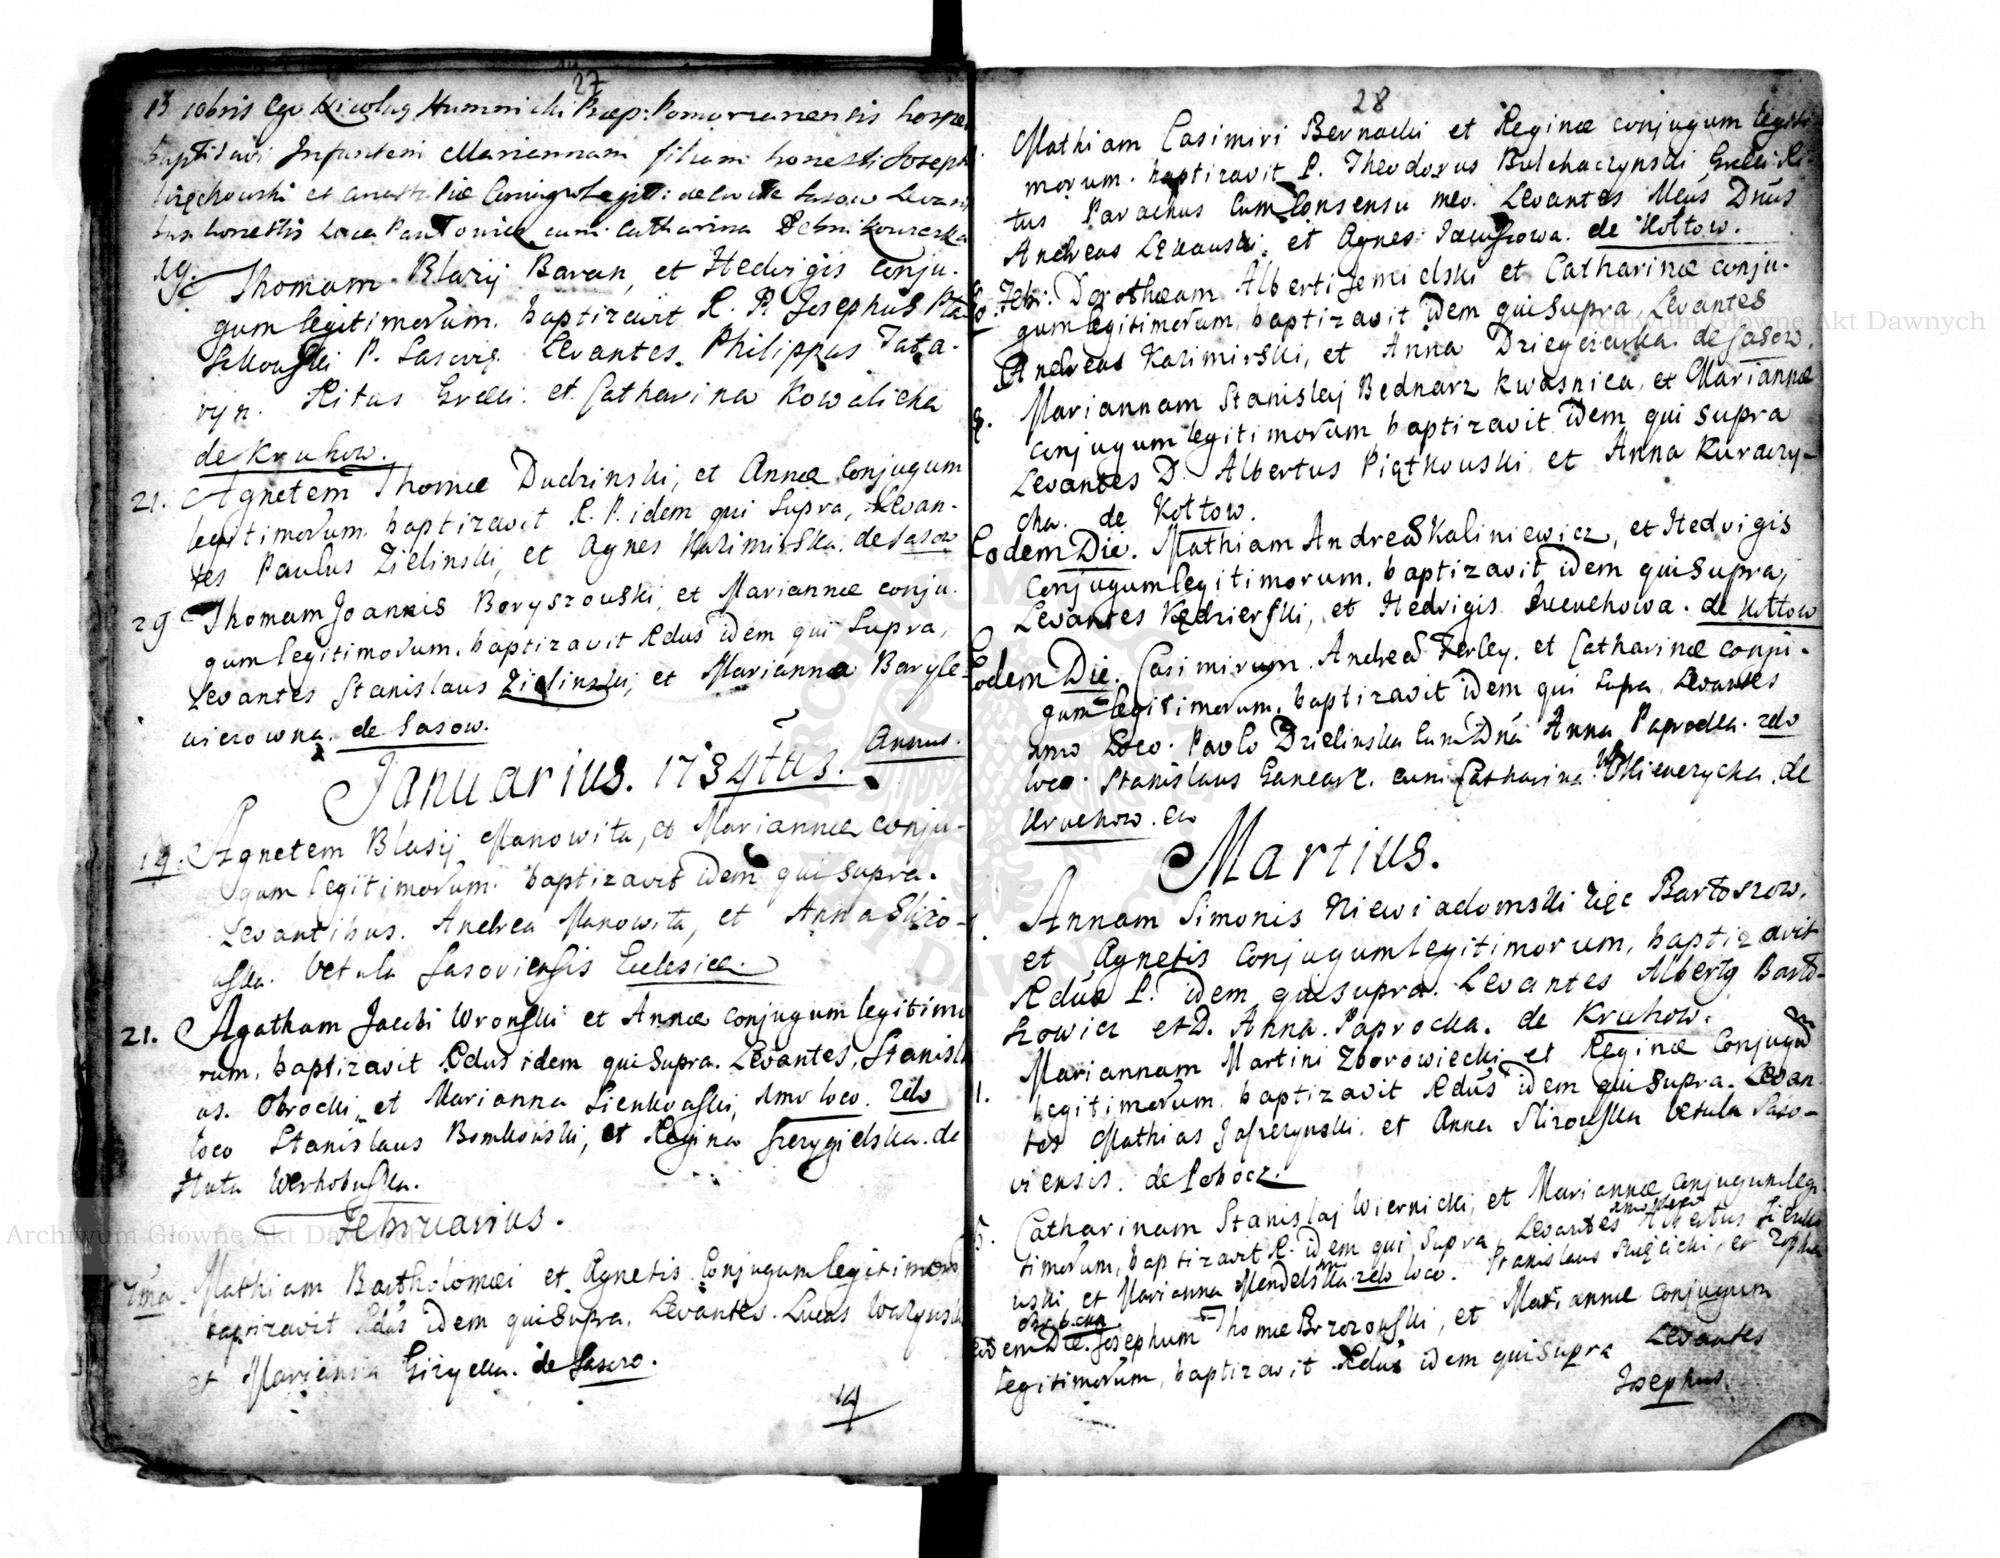 27
13 10bris Ego Nicolaus Humnicki Præp: Pomorzanensis hospes
baptisavi Infantem Mariannam filiam honesti Josephi
et Conjug Legit: de Civitte Sasow Levan
honestis Luca cum Catharina
19. Thomam Blasij Baran, et Hedvigis conju-
gum legitimorum, baptizavit R. P. Josephus
P. Sasovie. Levantes Philippus Tata-
ryn. Ritus Græci. et Catharina Kowalicha
de Kruhow.
21. Agnetem Thomæ Dudzinski, et Annæ Conjugum
legitimorum baptizavit R. P. idem qui Supra, Levan-
tes Paulus Zielinski, et Agnes Kazimirska. de Sasow
29 Thomam Joannis Boryszouski, et Mariannæ conju-
gum legitimorum, baptizavit Rdus idem qui Supra,
Levantes Stanislaus Zielinski, et Marianna Baryle-
wiczowna. de Sasow.
Annus.
Januarius. 1734tus.
19. Agnetem Blasij Manowita, et Mariannæ conju-
gum legitimorum. baptizavit idem qui supra.
Levantibus. Andrea Manowita, et Anna Slizo-
uska. Vetula Sasoviensis Eclesiæ.
21. Agatham Jacobi Wronski et Annæ conjugum legitimo
rum, baptizavit Rdus idem qui Supra. Levantes, Stanisla
us. Obrocki, et Marianna Sienkouski, Imo loco. 2do
loco Stanislaus Bomkouski, et Regina Szczygielska. de
Huta Werhobuska.
Februarius.
2ma. Mathiam Bartholomæi et Agnetis Conjugum legitimoru
baptizavit Rdus idem qui Supra. Levantes. Lucas
et Marianna Gizycka. de Sasow.
14
28
Mathiam Casimiri Bernacki et Reginæ conjugum legiti
morum. baptizavit P. Theodorus Bulchaczynski Græci Ri-
tus Parachus Cum Consensu meo. Levantes Meus Dnus
Andreas et Agnes de Koltow.
Febr: Dorothæam Alberti Jemielski et Catharinæ conju-
gum legitimorum, baptizavit idem qui Supra, Levantes
Andreas Kazimirski, et Anna de Sasow.
Mariannam Stanislaj Bednarz Kwasnica, et Mariannæ
conjugum legitimorum, baptizavit idem qui Supra
Levantes D. Albertus Piątkouski et Anna Kuraczy-
cha. de Koltow.
Eodem Die. Mathiam Andreæ Kaliniewicz, et Hedvigis
Conjugum legitimorum, baptizavit idem qui Supra,
Levantes Kędzierski, et Hedvigis de Koltow
Eodem Die. Casimirum. Andreæ Ferley. et Catharinæ conju-
gum legitimorum, baptizavit idem qui Supra Levantes
imo Loco. Paulo Dzielinska cum Dna Anna Paprocka. 2do
loco. Stanislaus Gancarz. cum Catharina de
Kruchow.
Martius.
Annam Simonis Niewiadomski zięc Bartoszow.
et Agnetis Conjugum legitimorum, baptizavit
Rdus P. idem qui supra. Levantes Albertg Barto-
szowicz et D. Anna Paprocka. de Kruhow.
Mariannam Martini Zborowiecki et Reginæ Conjugu
legitimorum, baptizavit Rdus idem qui Supra. Levan-
tes Mathias et Anna Slizouska vetula Saso-
viensis. de Pobocz.
Catharinam Stanislaj Wiernicki, et Mariannæ Conjugum legi
imo loco
timorum, baptizavit R. idem qui Supra, Levantes Albertus
uski et Marianna Mendelska 2do loco. Stanislaus et
Eodem Die. Josephum Thomæ Brzozouski, et Mariannæ conjugum
legitimorum, baptizavit Rdus idem qui Supra Levantes
Josephus.
Archiwum Główne Akt Dawnych
Archiwum Główne Akt Dawnych